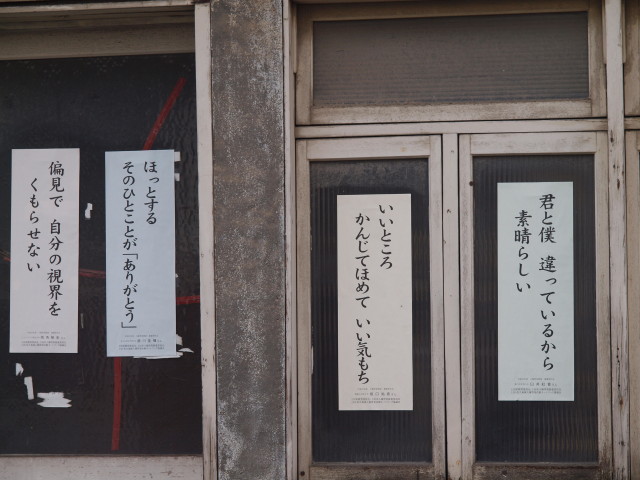 君と僕 違っているから
素晴らしい
いいところ
かんじてほめて いい気もち
ほっとする
そのひとことが「ありがとう」
偏見で 自分の視界を
くもらせない